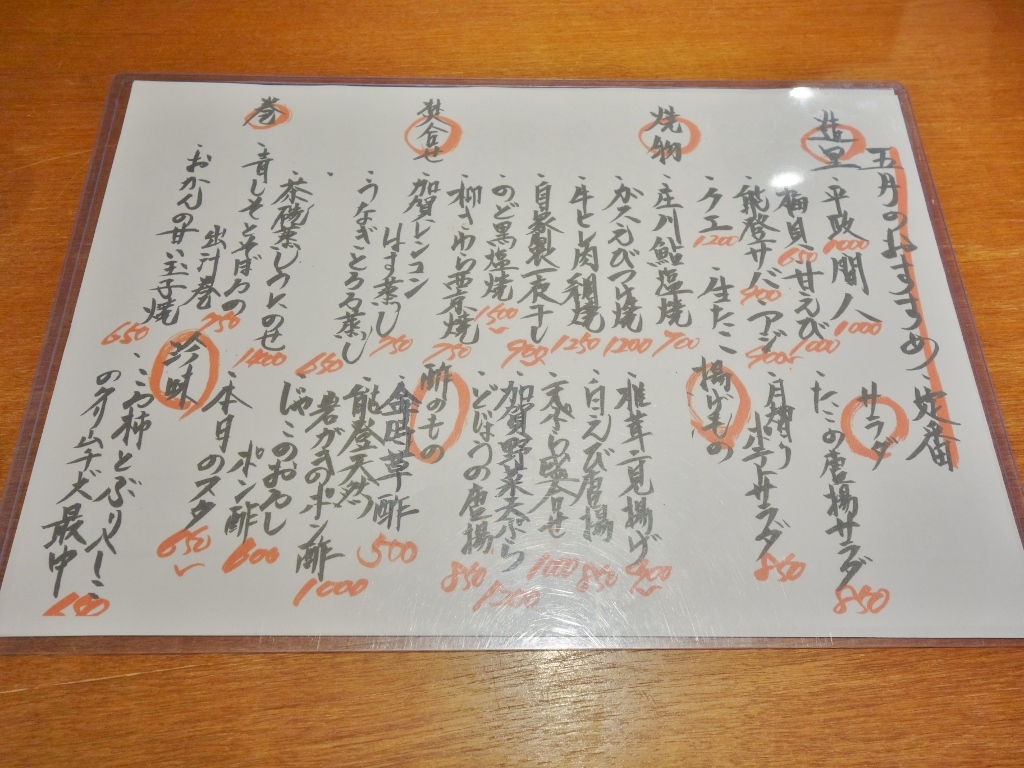 五月のおすすめ 定番
造里
平政 1000
間人 1000
梅貝 650
甘えび 1000
能登サバ 900
アジ 900
クエ 1200
生たこ
焼物
庄川鮎塩焼 700
がスえびつけ焼 1200
牛ヒレ肉朴焼 1250
自家製一夜干し 950
のど黒塩焼 1500
柳さわら西京焼 750
焚合せ
加賀レンコン
はす蒸し 750
うなぎとろろ蒸し 650
茶碗蒸しウニのせ 1400
巻
青しそとそぼろの
出汁巻 750
おかんの甘い玉子焼 650
サラダ
たこの唐揚サラダ 850
サラダ 850
揚げもの
椎茸二見揚げ 900
白えび唐揚 850
天ぷら盛合せ
加賀野菜天ぷら 1200
どじょうの唐揚 850
酢のもの
金時草酢 500
能登天然
岩がきのポン酢 1000
じゃこのおろし
ポン酢 600
本日のヌタ 650
珍味
こつぶりやーこ
最中